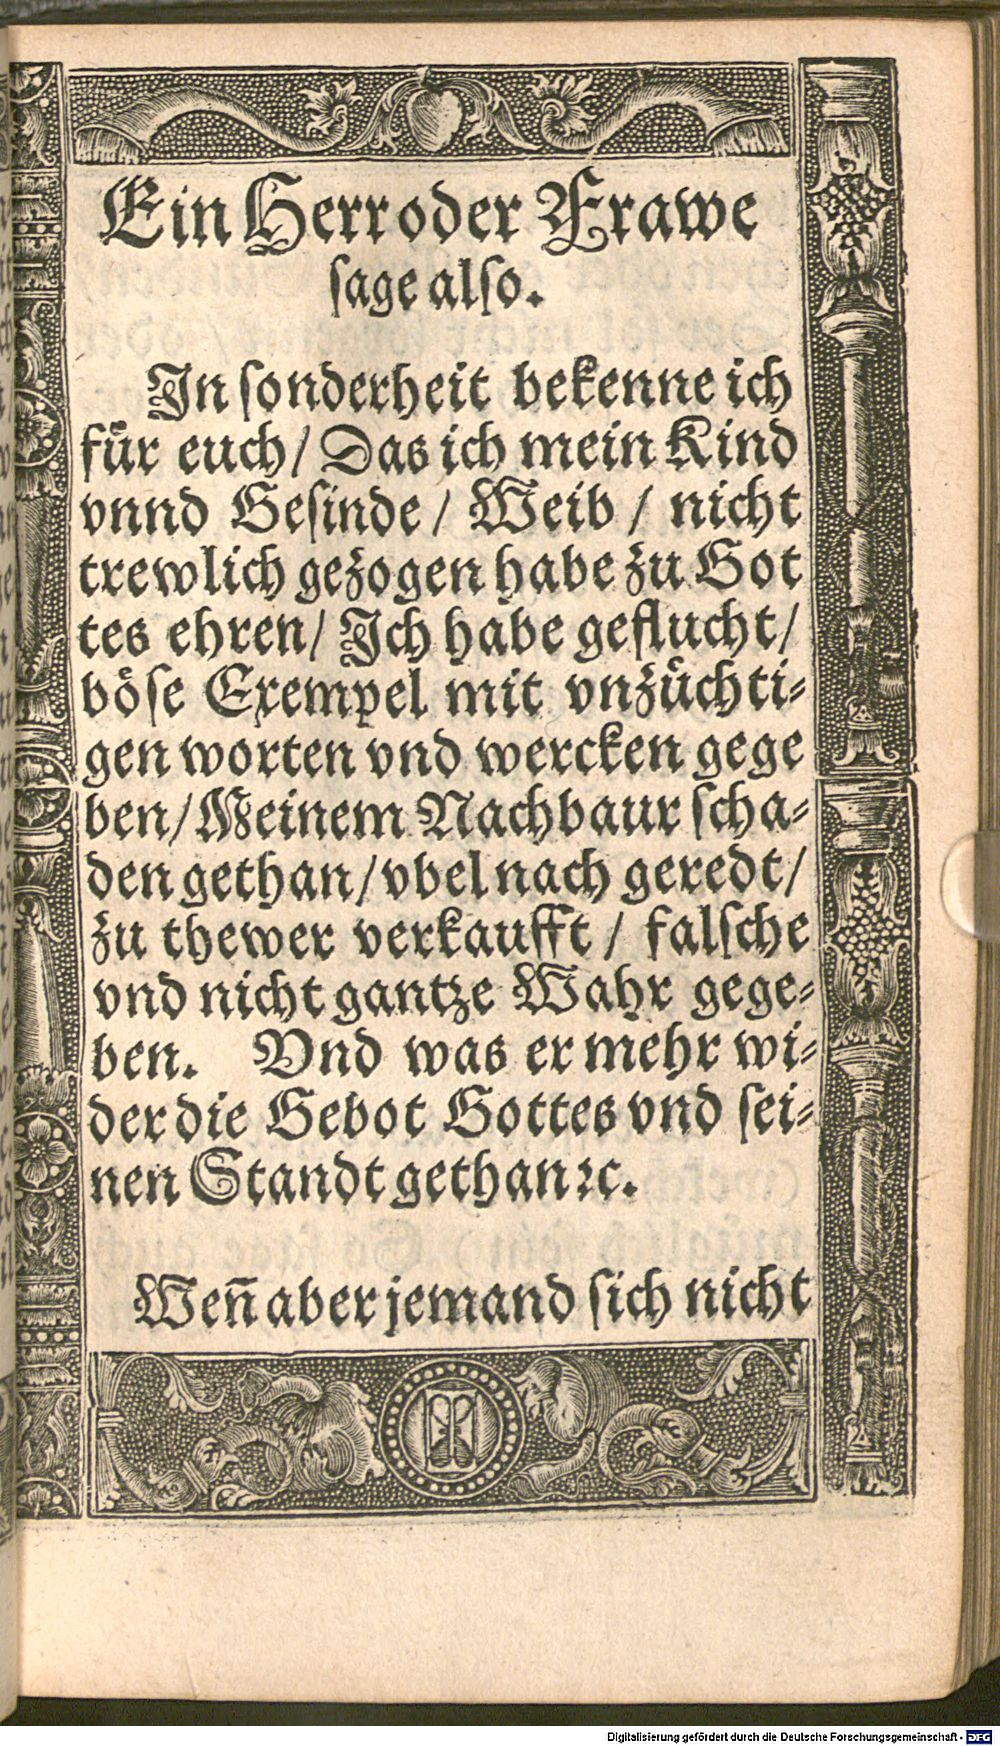 Ein Herr oder Frawe
sage also.
In sonderheit bekenne ich
für euch/ Das ich mein Kind
vnnd Gesinde/ Weib/ nicht
trewlich gezogen habe zu Got
tes ehren/ Ich habe geflucht/
böse Exempel mit vnzüchti-
gen worten vnd wercken gege
ben/ Meinem Nachbaur scha-
den gethan/ vbel nach geredt/
zu thewer verkaufft/ falsche
vnd nicht gantze Wahr gege-
ben. Vnd was er mehr wi-
der die Gebot Gottes vnd sei-
nen Standt gethan ꝛc.
Weñ aber jemand sich nicht
Digitalisierung gefördert durch die Deutsche Forschungsgemeinschaft - DFG